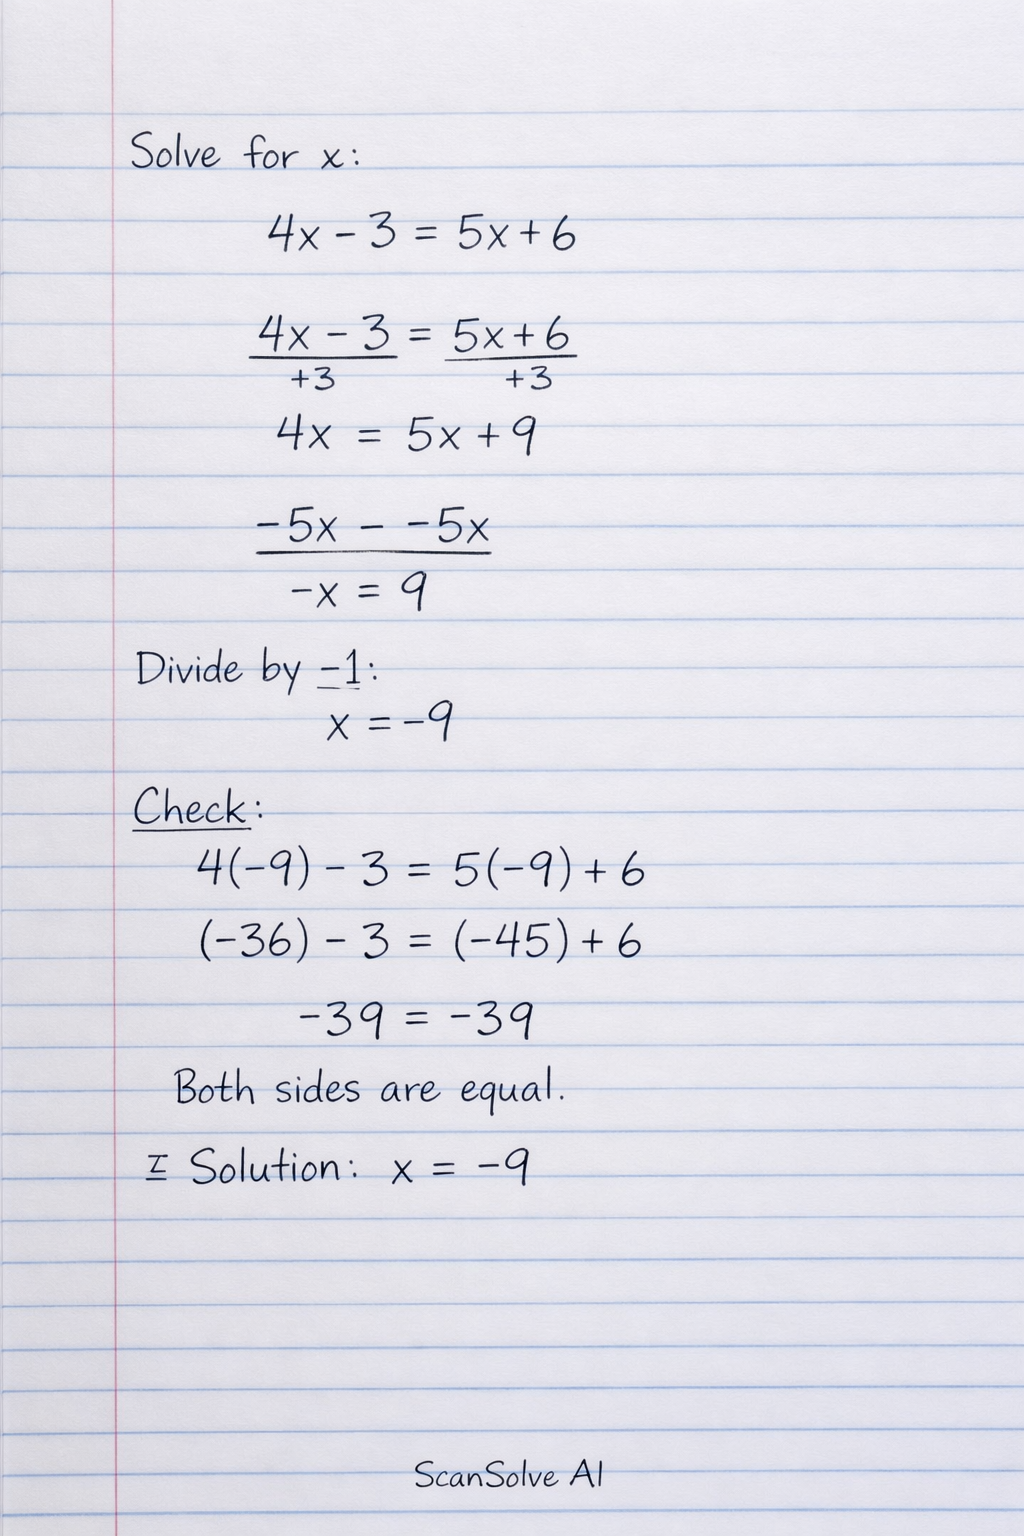 Solve for x:
4x - 3 = 5x + 6
4x - 3 = 5x + 6
+3 +3
4x = 5x + 9
-5x - -5x
-x = 9
Divide by -1:
x = -9
Check:
4(-9) - 3 = 5(-9) + 6
(-36) - 3 = (-45) + 6
-39 = -39
Both sides are equal.
I Solution: x = -9
ScanSolve AI